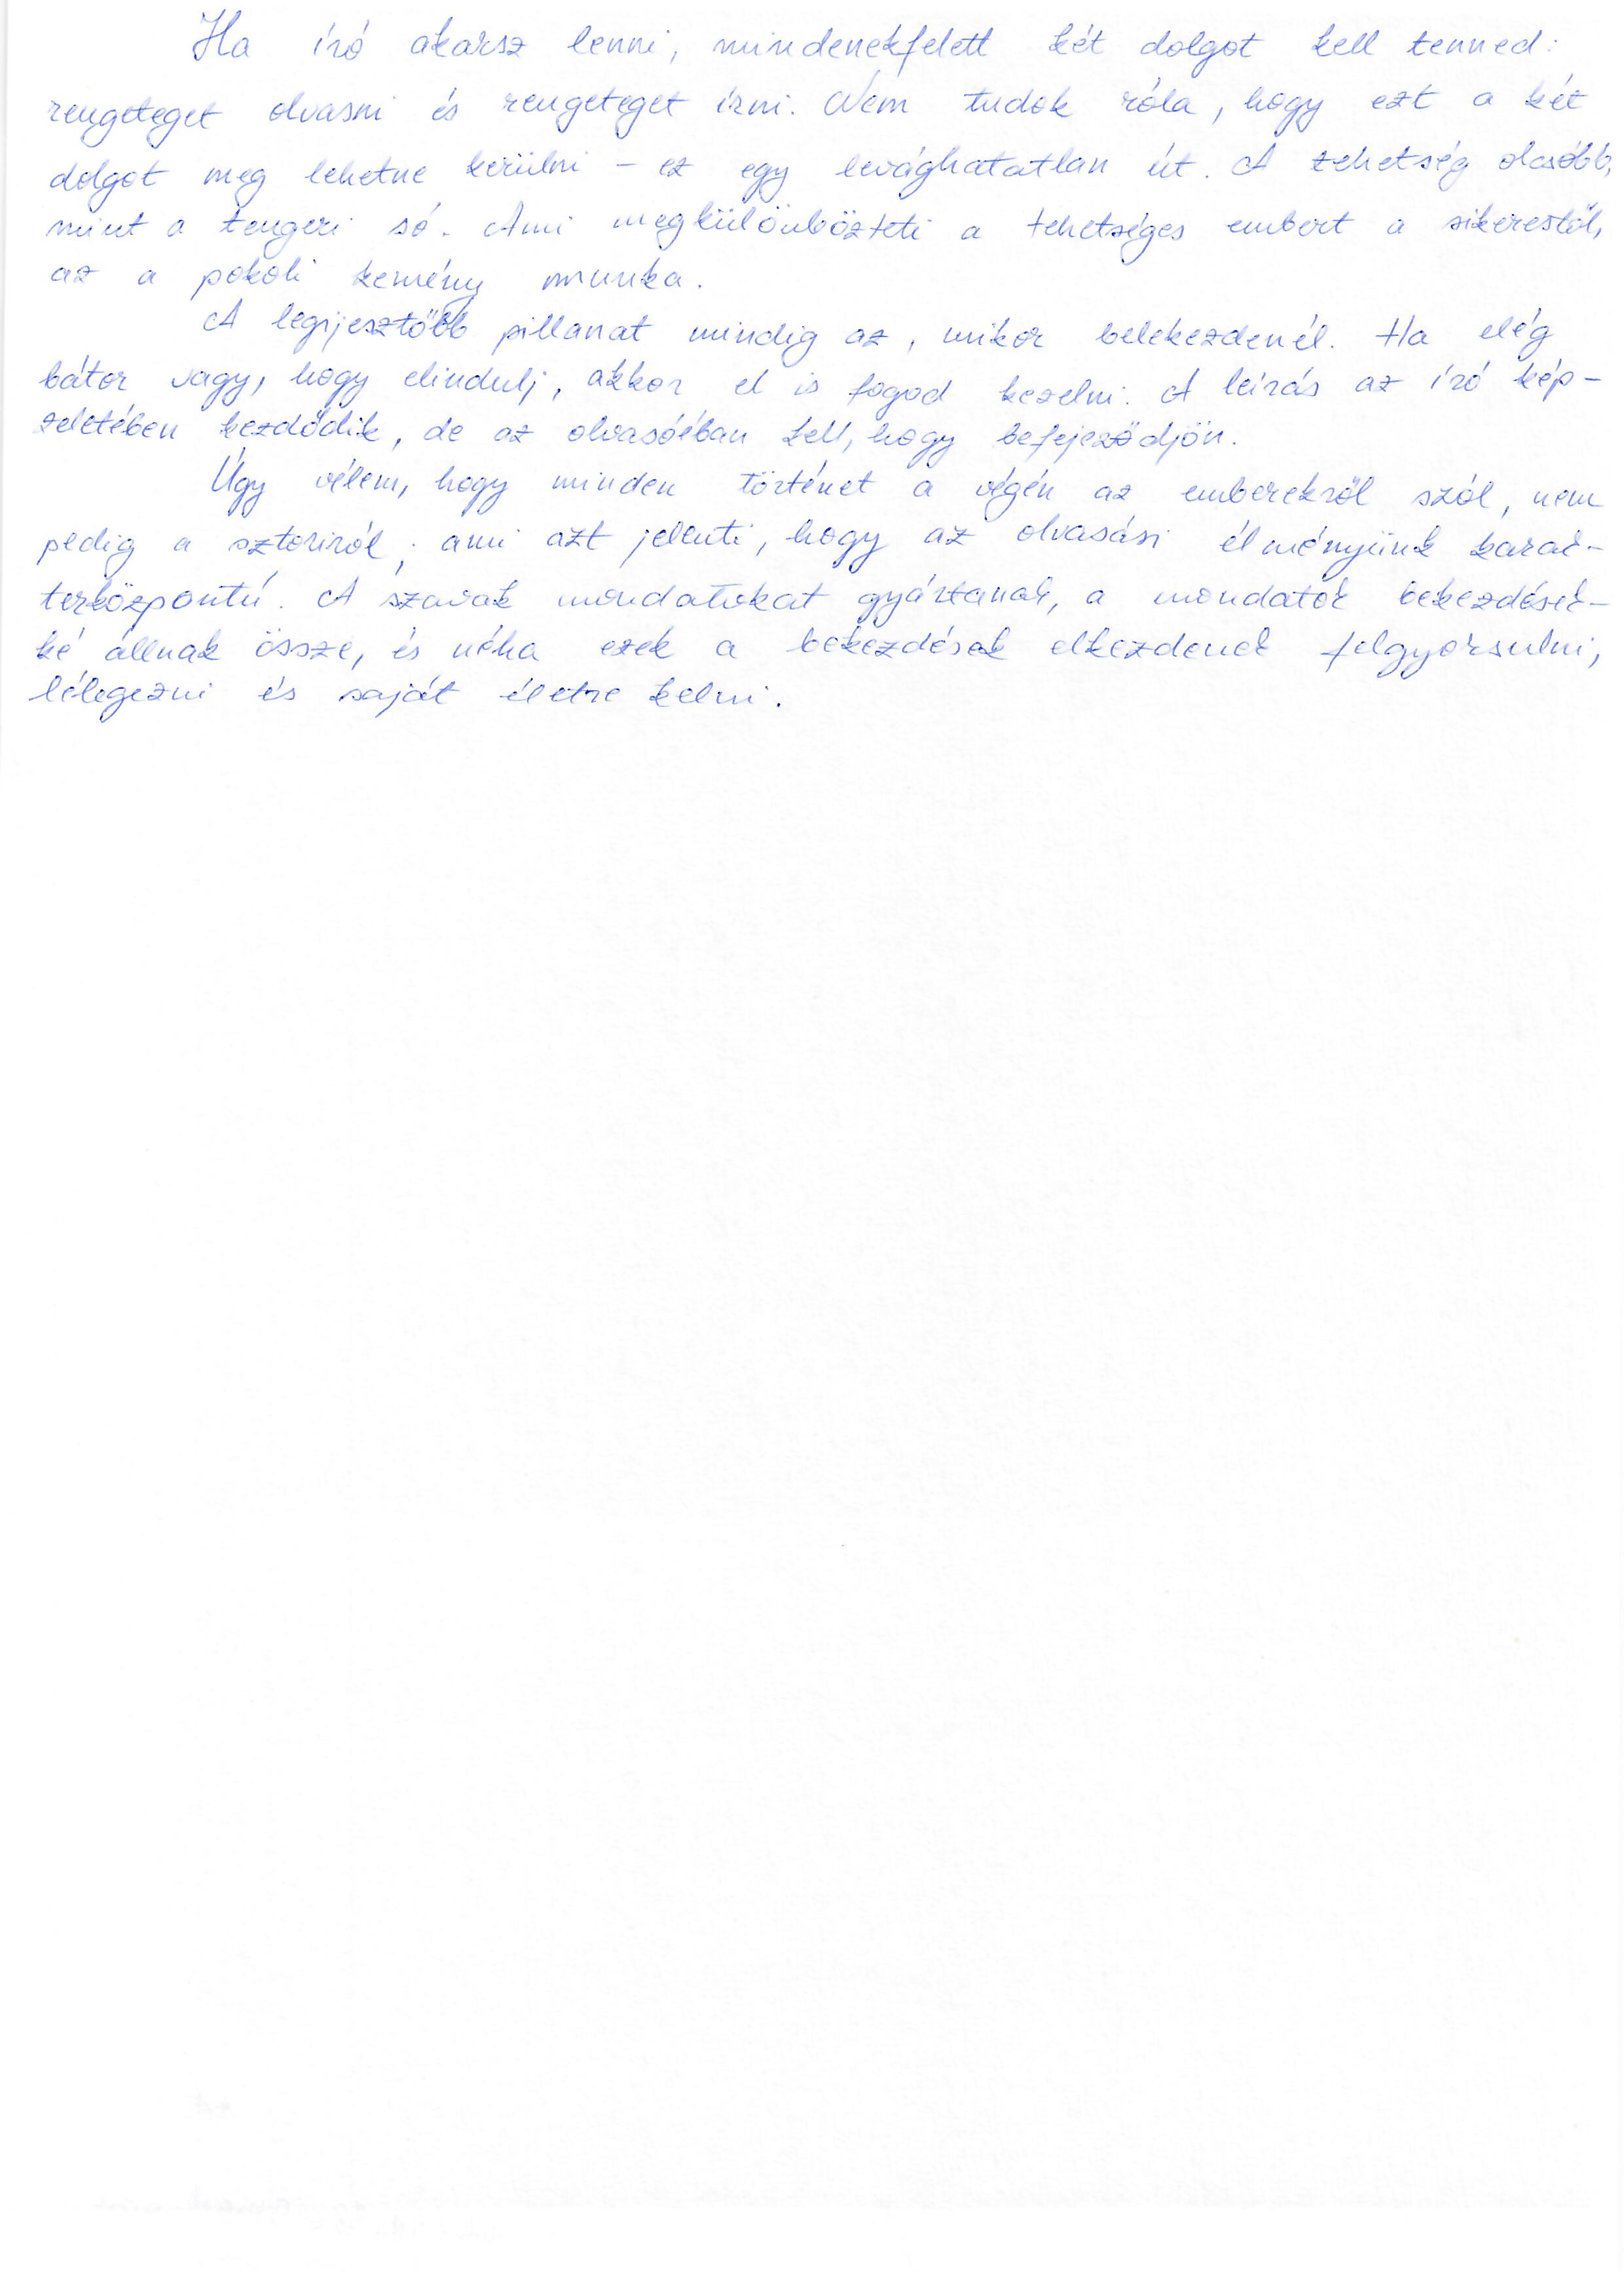 Ha író akarsz lenni, mindenekfelett két dolgot kell tenned:
rengeteget olvasni és rengeteget írni. Nem tudok róla, hogy ezt a két
dolgot meg lehetne kerülni – ez egy levághatatlan út. A tehetség olcsóbb,
mint a tengeri só. Ami megkülönbözteti a tehetséges embert a sikerestől,
az a pokoli kemény munka.
A legijesztőbb pillanat mindig az, mikor belekezdenél. Ha elég
bátor vagy, hogy elindulj, akkor el is fogod kezelni. A leírás az író kép-
zeletében kezdődik, de az olvasóéban kell, hogy befejeződjön.
Úgy vélem, hogy minden történet a végén az emberekről szól, nem
pedig a sztoriról; ami azt jelenti, hogy az olvasási élményünk karak-
terközpontú. A szavak mondatokat gyártanak, a mondatok bekezdések-
ké állnak össze, és néha ezek a bekezdések elkezdenek felgyorsulni,
lélegezni és saját életre kelni.